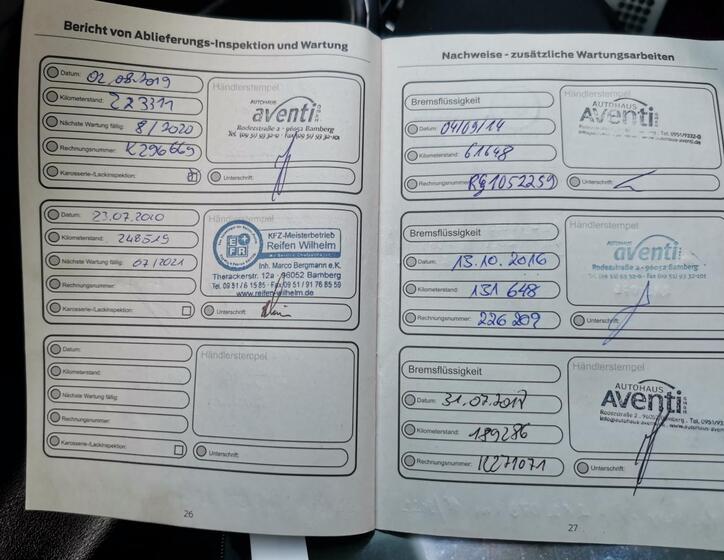 Bericht von Ablieferungs-Inspektion und Wartung
Datum: 02.08.2019
Kilometerstand: 223311
Nächste Wartung fällig: 8/2020
Rechnungsnummer: K296669
Karosserie-/Lackinspektion:
Händlerstempel
AUTOHAUS
aventi
GMBH
Rodezstraße 2 - 96052 Bamberg
Unterschrift:
Datum: 23.07.2020
Kilometerstand: 248519
Nächste Wartung fällig: 07/2021
Rechnungsnummer:
Karosserie-/Lackinspektion:
Händlerstempel
KFZ-Meisterbetrieb
Reifen Wilhelm
Inh. Marco Bergmann e.K.
Therackerstr. 12a · 96052 Bamberg
Tel. 09 51/6 15 85 · Fax 09 51/91 76 85 59
www.reifen-wilhelm.de
Unterschrift:
Datum:
Kilometerstand:
Nächste Wartung fällig:
Rechnungsnummer:
Karosserie-/Lackinspektion:
Händlerstempel
Unterschrift:
26
Nachweise - zusätzliche Wartungsarbeiten
Bremsflüssigkeit
Datum: 04/09/14
Kilometerstand: 61648
Rechnungsnummer: RG1052259
Händlerstempel
AUTOHAUS
AVENTI
Unterschrift:
Bremsflüssigkeit
Datum: 13.10.2016
Kilometerstand: 131 648
Rechnungsnummer: 226209
Händlerstempel
aventi
Rodezstraße 2 - 96052 Bamberg
Unterschrift:
Bremsflüssigkeit
Datum: 31.07.2018
Kilometerstand: 189286
Rechnungsnummer: K271071
Händlerstempel
AUTOHAUS
AVENTI
GMBH
Unterschrift:
27